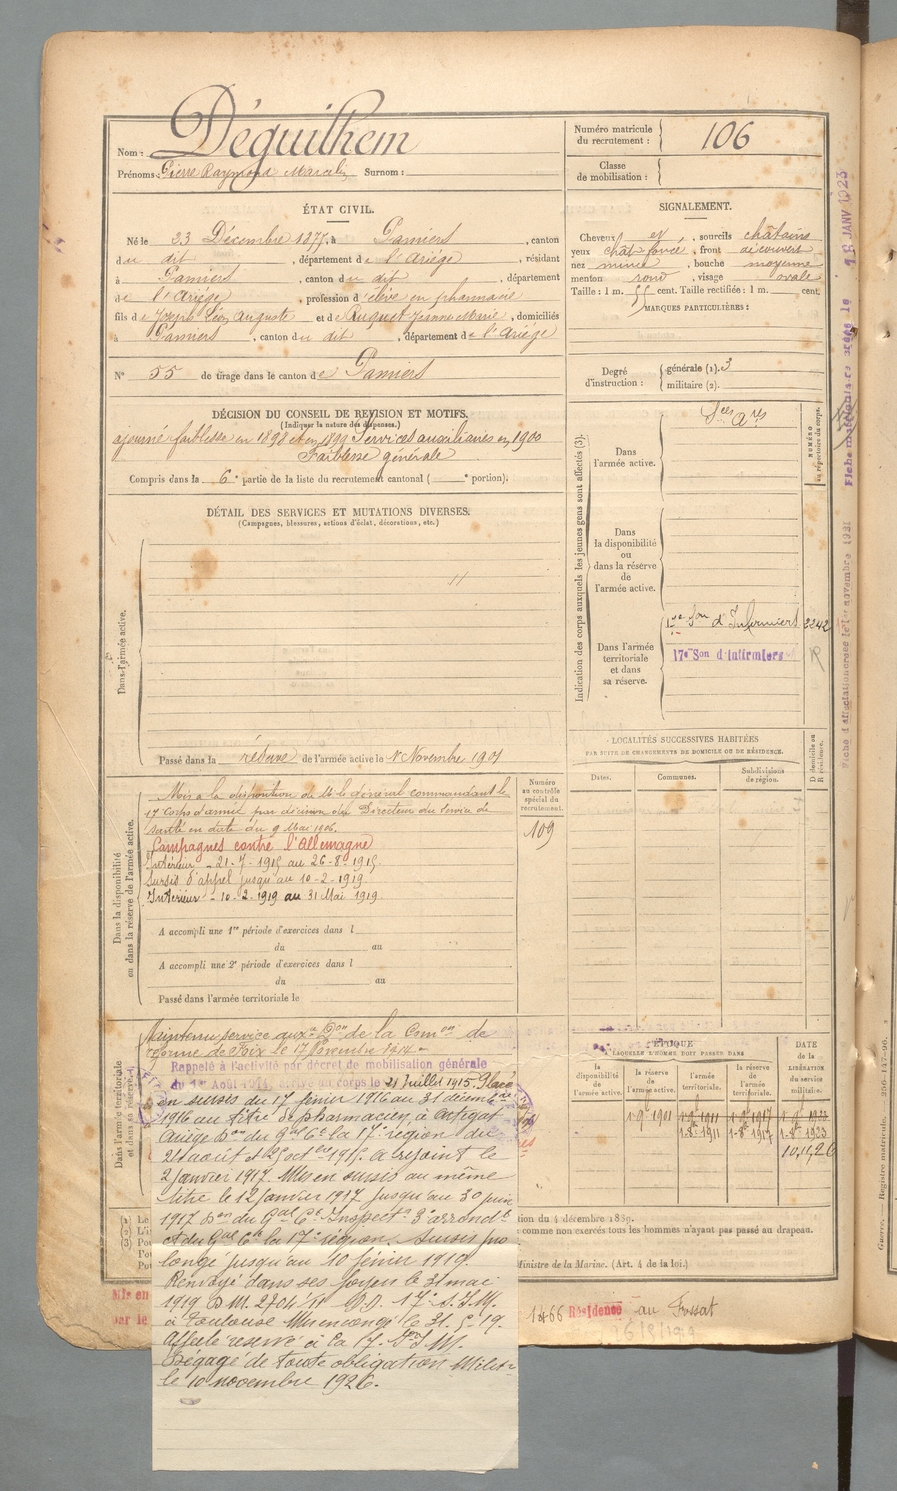 Nom : Déguilhem
Prénoms : Pierre Raymond Marcelin Surnom :
Numéro matricule
du recrutement : 106
Classe
de mobilisation :
ÉTAT CIVIL.
Né le 23 Décembre 1877, à Pamiers, canton
du dit, département de l'Ariége, résidant
à Pamiers, canton du dit, département
de l'Ariége, profession d'élève en pharmacie
fils de Joseph Léon Auguste et de Ruquet Jeanne Marie, domiciliés
à Pamiers, canton du dit, département de l'Ariége
N° 55 de tirage dans le canton de Pamiers
SIGNALEMENT.
Cheveux et, sourcils châtains
yeux chât foncé, front découvert
nez mince, bouche moyenne
menton rond, visage ovale
Taille : 1 m. 55 cent. Taille rectifiée : 1 m. cent.
MARQUES PARTICULIÈRES :
Degré
d'instruction :
générale (1). 3
militaire (2).
DÉCISION DU CONSEIL DE REVISION ET MOTIFS.
(Indiquer la nature des dispenses.)
ajourné faiblesse en 1898 et en 1899 Services auxiliaires en 1900
Faiblesse générale
Compris dans la 6e partie de la liste du recrutement cantonal ( e portion).
DÉTAIL DES SERVICES ET MUTATIONS DIVERSES.
(Campagnes, blessures, actions d'éclat, décorations, etc.)
Dans l'armée active.
Passé dans la réserve de l'armée active le 1er Novembre 1901
Indication des corps auxquels les jeunes gens sont affectés (3).
NUMÉRO
au répertoire du corps.
Dans
l'armée active.
Sces Ares
Dans
la disponibilité
ou
dans la réserve
de
l'armée active.
Dans l'armée
territoriale
et dans
sa réserve.
Son d'Infirmiers 2242
17e Son d'Infirmiers
R
LOCALITÉS SUCCESSIVES HABITÉES
PAR SUITE DE CHANGEMENTS DE DOMICILE OU DE RÉSIDENCE.
D domicile ou
R résidence.
Dates.
Communes.
Subdivisions
de région.
Dans la disponibilité
ou dans la réserve de l'armée active.
Numéro
au contrôle
spécial du
recrutement.
109
Mis à la disposition de M. le général commandant le
17 Corps d'armée par décision du Directeur du Service de
santé en date du 9 Mai 1906.
Campagnes contre l'Allemagne
Intérieur - 21-7-1915 au 26-8-1915.
Sursis d'appel jusqu'au 10-2-1919.
Intérieur - 10-2-1919 au 31 Mai 1919.
A accompli une 1re période d'exercices dans l
du au
A accompli une 2e période d'exercices dans l
du au
Passé dans l'armée territoriale le
Dans l'armée territoriale
et dans sa réserve.
Maintenu service auxre Don de la Comon de
réforme de Foix le 17 Novembre 1914.
Rappelé à l'activité par décret de mobilisation générale
du 1er Août 1914, arrivé au corps le 21 Juillet 1915. Placé
en sursis du 17 février 1916 au 31 décembre
1916 au titre de pharmacien, à Artigat
Ariège Don du Gal Ct la 17e région du
21 août et 25 oct 1915. A rejoint le
2 Janvier 1917. Mis en sursis au même
titre le 12 Janvier 1917 jusqu'au 30 juin
1917 Don du Gal Ct Inspectn 3e arrondt
et du Gal Ct la 17e région. Sursis pro
longé jusqu'au 10 février 1919.
Renvoyé dans ses foyers le 31 mai
1919 17e S.I.M.
à Toulouse le 31-5-19.
Affecté réservé à la 17e Son I.M.
Dégagé de toute obligation Milit
le 10 novembre 1926.
ÉPOQUE
À LAQUELLE L'HOMME DOIT PASSER DANS
la
disponibilité
de
l'armée active.
la réserve
de
l'armée active.
l'armée
territoriale.
la réserve
de
l'armée
territoriale.
DATE
de la
LIBÉRATION
du service
militaire.
1-9bre 1901 1-9bre 1911 1-9bre 1917 1-9bre 1923
1-8bre 1911 1-8bre 1917 1-8bre 1923
10.11.26
tion du 4 décembre 1889.
comme non exercés tous les hommes n'ayant pas passé au drapeau.
Ministre de la Marine. (Art. 4 de la loi.)
Mis en
par le
1466 Résidence au Fossat
Guerre. — Registre matricule.